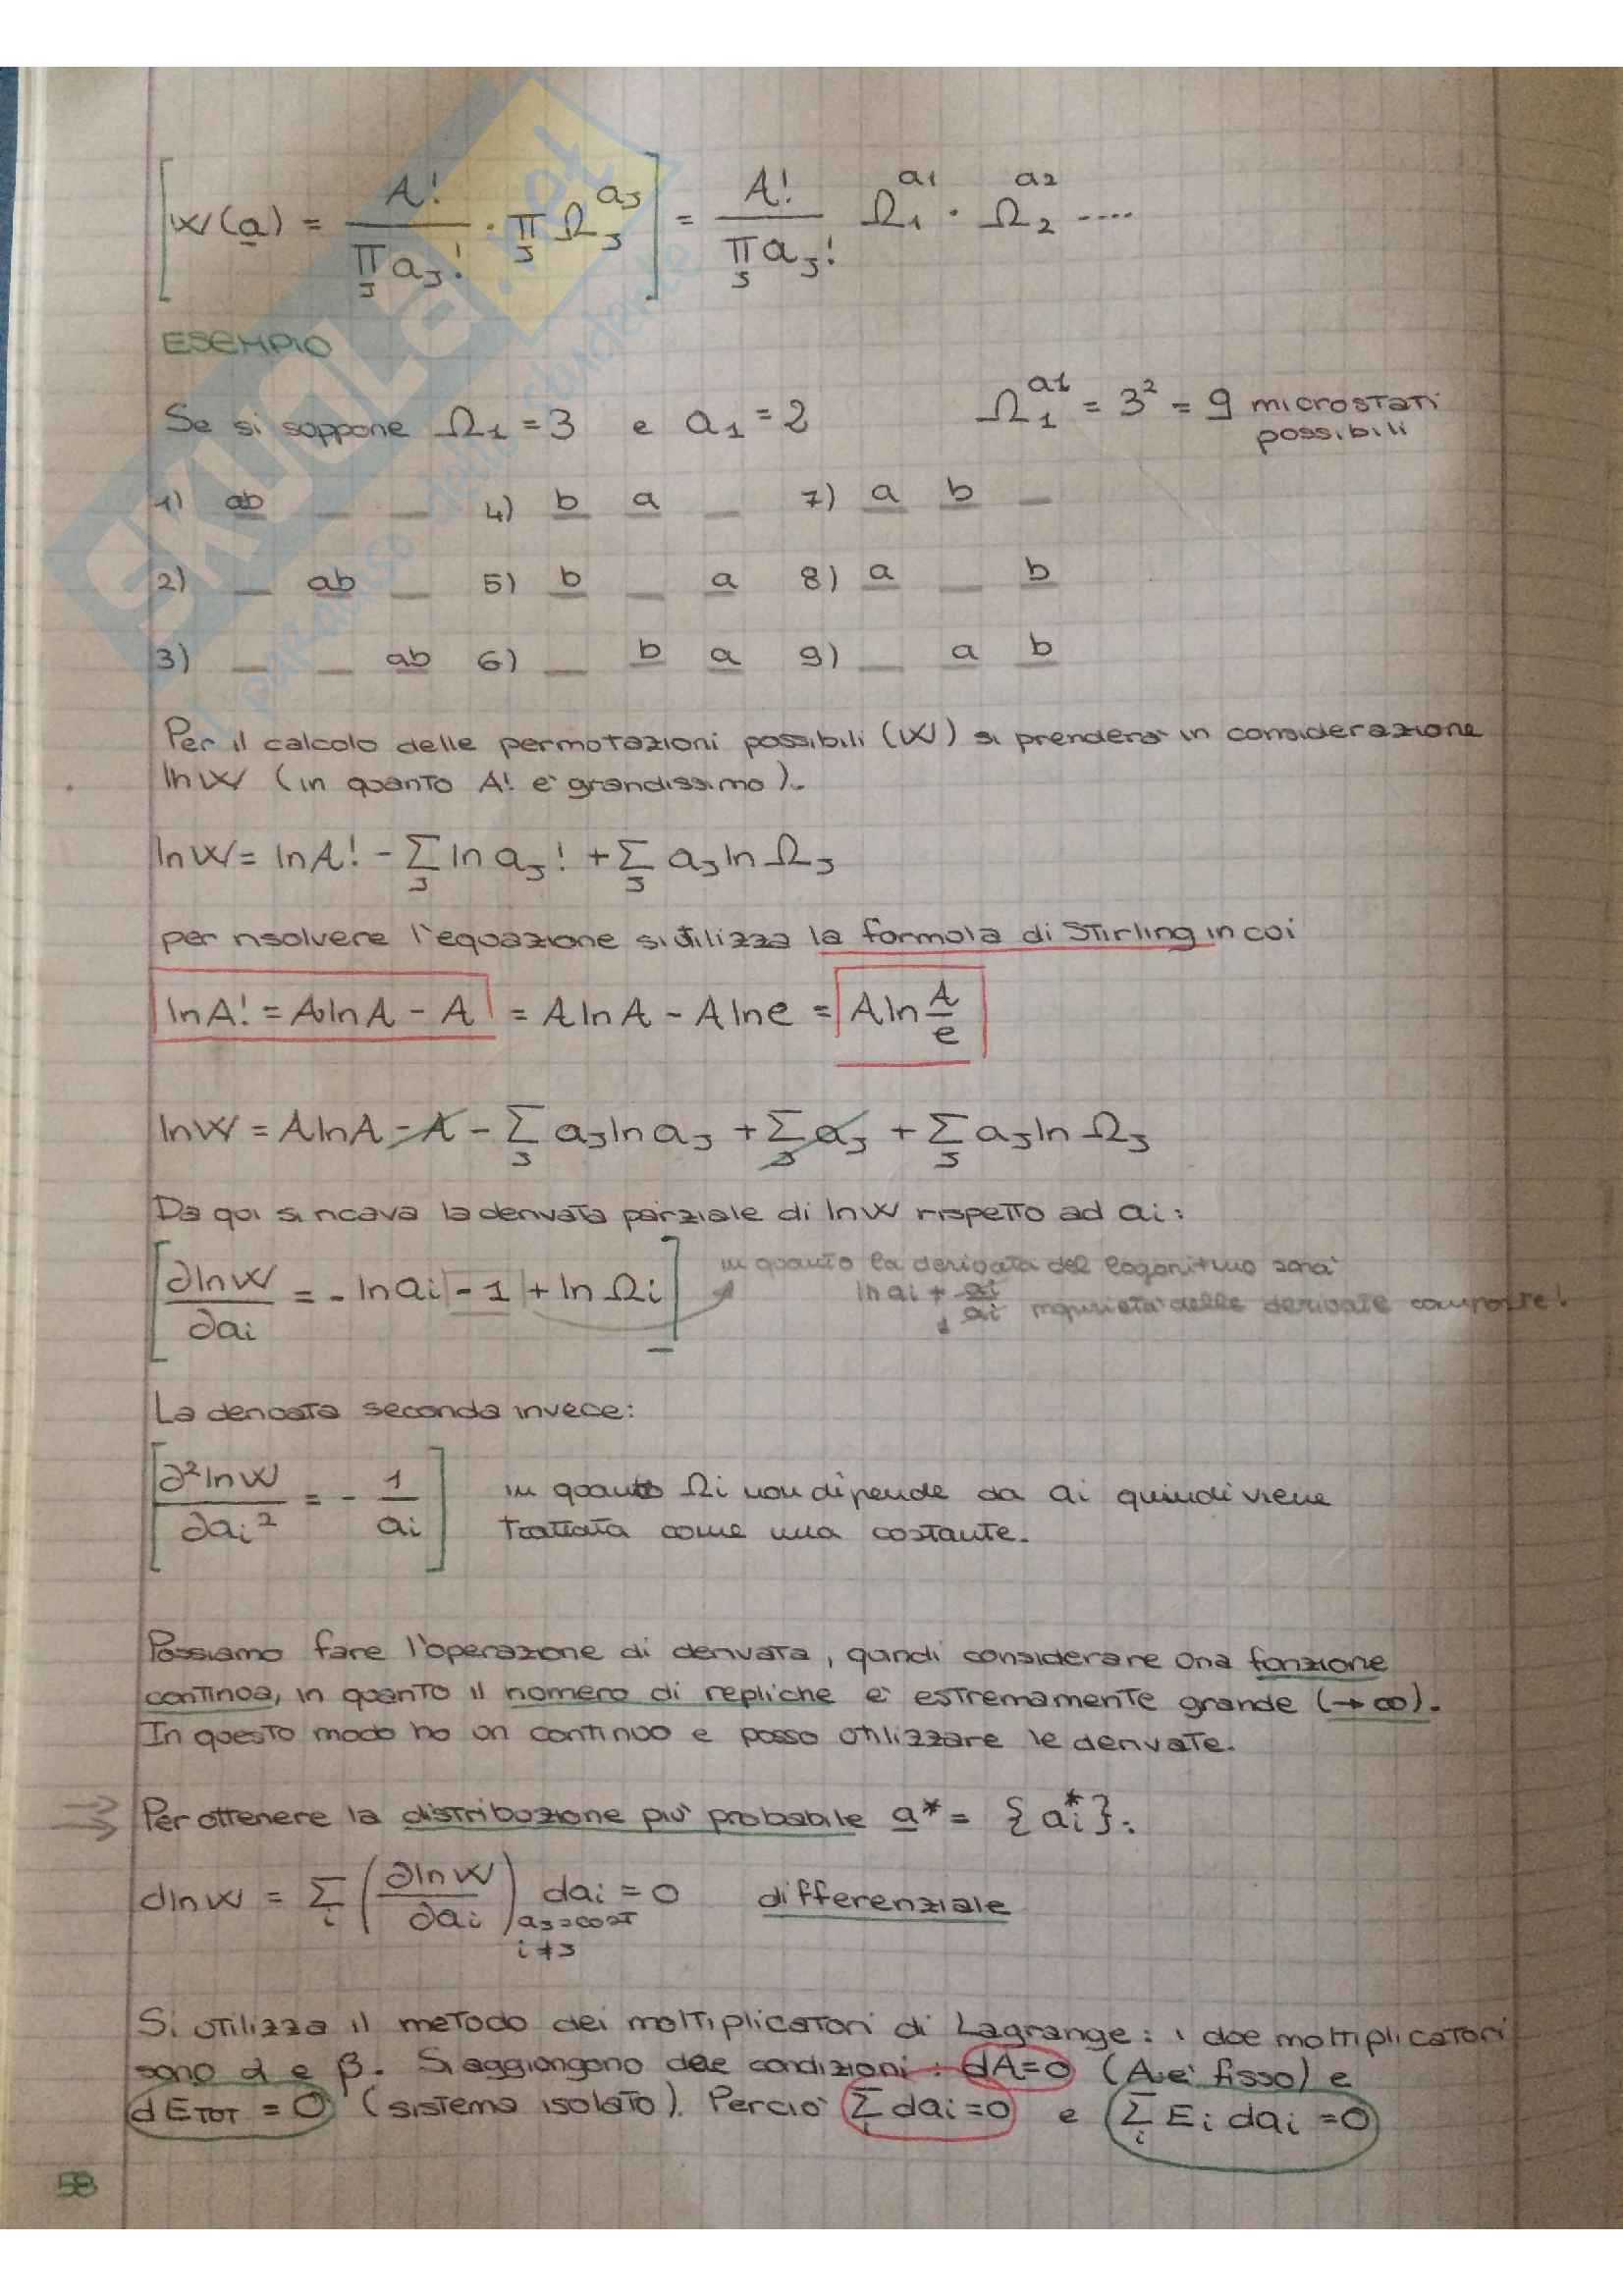 [W(a) = A! / π_J a_J! · π_J Ω_J^(a_J)] = A! / π_J a_J! Ω_1^(a1) · Ω_2^(a2) ....
ESEMPIO
Se si suppone Ω_1 = 3 e a_1 = 2 Ω_1^(a1) = 3² = 9 microstati possibili
1) ab _ _ 4) b a _ 7) a b _
2) _ ab _ 5) b _ a 8) a _ b
3) _ _ ab 6) _ b a 9) _ a b
Per il calcolo delle permutazioni possibili (W) si prenderà in considerazione
ln W (in quanto A! è grandissimo).
ln W = ln A! - Σ_J ln a_J! + Σ_J a_J ln Ω_J
per risolvere l'equazione si utilizza la formula di Stirling in cui
ln A! = A ln A - A = A ln A - A ln e = A ln A/e
ln W = A ln A - A - Σ_J a_J ln a_J + Σ_J a_J + Σ_J a_J ln Ω_J
Da qui si ricava la derivata parziale di ln W rispetto ad ai:
[∂ln W / ∂ai = - ln ai - 1 + ln Ωi] in quanto la derivata del logaritmo sarà
ln ai + ai/ai delle derivate composte!
La derivata seconda invece:
[∂² ln W / ∂ai² = - 1/ai] in quanto Ωi non dipende da ai quindi viene
trattata come una costante.
Possiamo fare l'operazione di derivata, quindi considerare una funzione
continua, in quanto il numero di repliche è estremamente grande (→ ∞).
In questo modo ho un continuo e posso utilizzare le derivate.
⇒ Per ottenere la distribuzione più probabile a* = {ai*}:
dln W = Σ_i (∂ln W / ∂ai)_(aJ=cost i≠J) dai = 0 differenziale
Si utilizza il metodo dei moltiplicatori di Lagrange: i due moltiplicatori
sono α e β. Si aggiungono due condizioni: dA=0 (A è fisso) e
dE_TOT = 0 (sistema isolato). Perciò Σ_i dai = 0 e Σ_i Ei dai = 0
58
SKUOLA.net
il paradiso dello studente